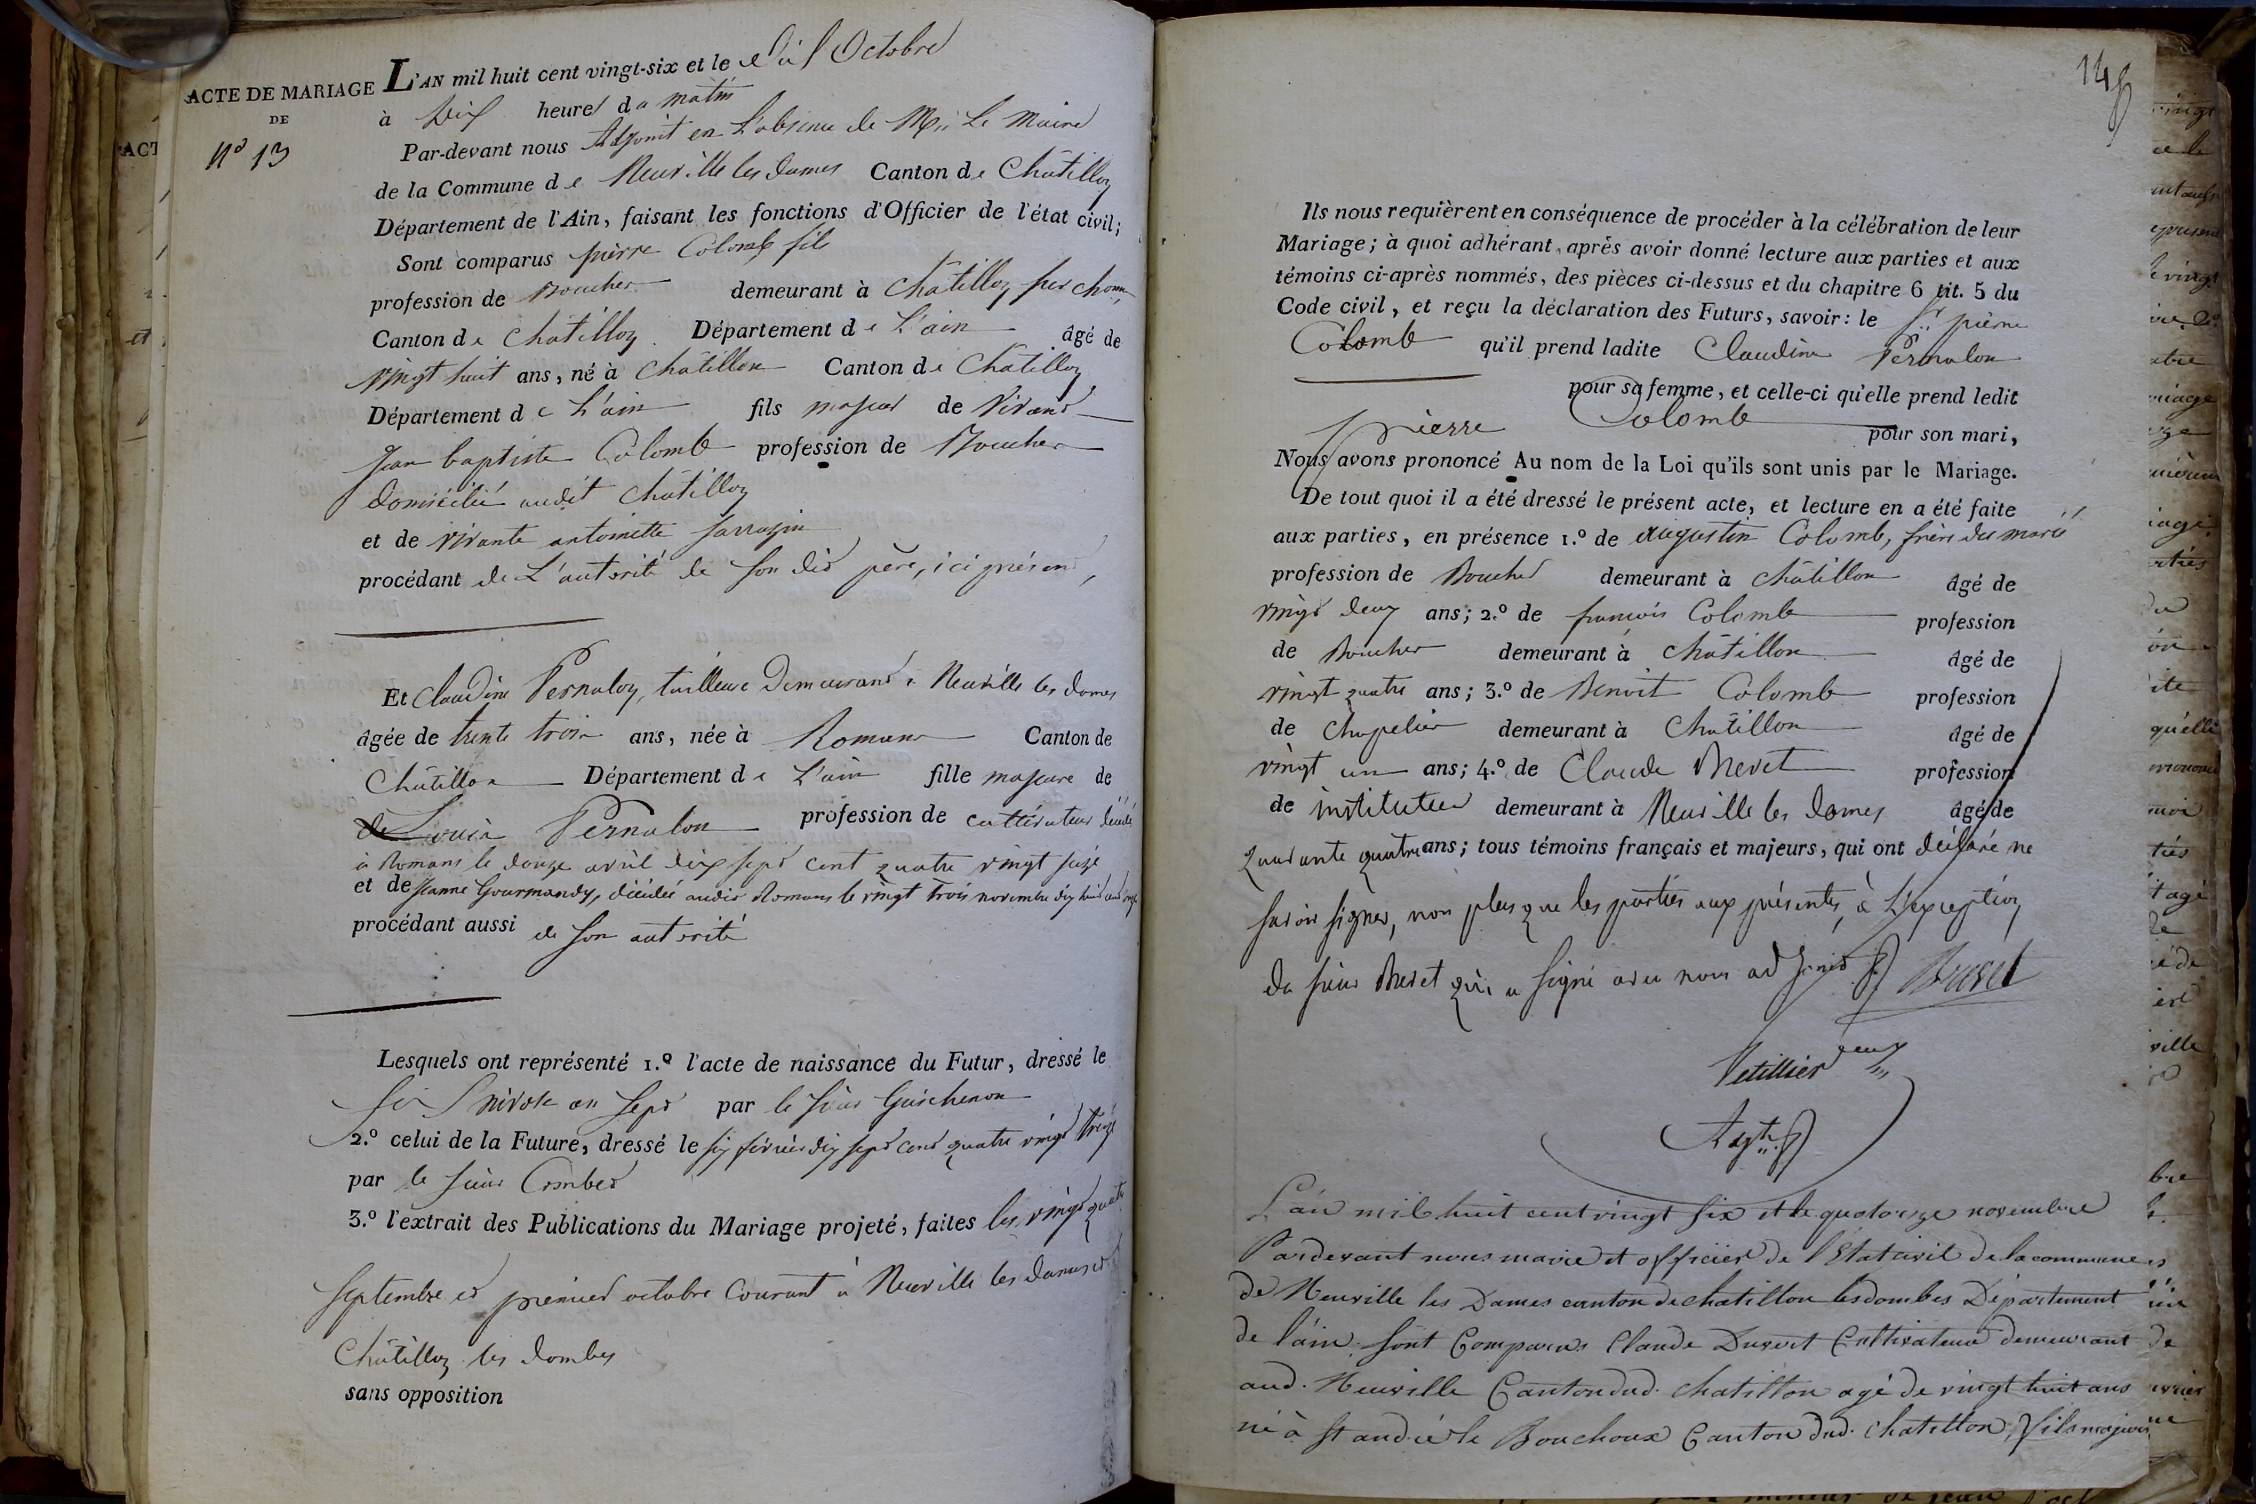 ACTE DE MARIAGE
DE
N° 13
L'AN mil huit cent vingt-six et le dix Octobre
à Dix heures du matin
Par-devant nous Adjoint en L'absence de Mr. Le Maire
de la Commune de Neuville les dames Canton de Châtillon
Département de l'Ain, faisant les fonctions d'Officier de l'état civil;
Sont comparus pierre Colomb fils
profession de Boucher demeurant à Châtillon sur chonne
Canton de Châtillon Département de L'ain âgé de
vingt huit ans, né à Châtillon Canton de Châtillon
Département de L'ain fils majeur de Vivant
Jean baptiste Colomb profession de Boucher
domicilié audit Châtillon
et de vivante antoinette Sarrazin
procédant de L'autorité de son dit père, ici présent,
Et Claudine Pernalon, tailleuse Demeurant à Neuville les dames
âgée de trente trois ans, née à Romans Canton de
Châtillon Département de L'ain fille majeure de
Louis Pernalon profession de cultivateur décédé
à Romans le douze avril dix sept cent quatre vingt seize
et de Jeanne Gourmandy, décédée audit Romans le vingt trois novembre dix huit cent onze
procédant aussi de son autorité
Lesquels ont représenté 1.º l'acte de naissance du Futur, dressé le
six nivose an sept par le sieur Guichenon
2.º celui de la Future, dressé le six février dix sept cent quatre vingt treize
par le sieur Combet
3.º l'extrait des Publications du Mariage projeté, faites les vingt quatre
septembre et premier octobre Courant à Neuville les dames et
Châtillon les dombes
sans opposition
148
Ils nous requièrent en conséquence de procéder à la célébration de leur
Mariage; à quoi adhérant, après avoir donné lecture aux parties et aux
témoins ci-après nommés, des pièces ci-dessus et du chapitre 6 tit. 5 du
Code civil, et reçu la déclaration des Futurs, savoir: le Sr. pierre
Colomb qu'il prend ladite Claudine Pernalon
pour sa femme, et celle-ci qu'elle prend ledit
pierre Colomb pour son mari,
Nous avons prononcé Au nom de la Loi qu'ils sont unis par le Mariage.
De tout quoi il a été dressé le présent acte, et lecture en a été faite
aux parties, en présence 1.º de augustin Colomb, frère du marié
profession de Boucher demeurant à Châtillon âgé de
vingt deux ans; 2.º de françois Colomb profession
de Boucher demeurant à Châtillon âgé de
vingt quatre ans; 3.º de Benoit Colomb profession
de Chapelier demeurant à Châtillon âgé de
vingt un ans; 4.º de Claude Brevet profession
de instituteur demeurant à Neuville les dames âgé de
quarante quatre ans; tous témoins français et majeurs, qui ont déclaré ne
savoir signer, non plus que les parties aux présentes, à L'exception
du sieur Brevet qui a signé avec nous adjoint Brevet
Vetillier
Adjt.
L'an mil huit cent vingt six et le quatorze novembre
Pardevant nous maire et officier de l'Etat civil de la commune
de Neuville les Dames canton de chatillon les dombes Département
de l'ain, sont Comparus Claude Duvert Cultivateur demeurant
aud. Neuville Canton dud. chatillon agé de vingt huit ans
né à St andré le Bouchoux Canton dud. chatillon, fils majeur